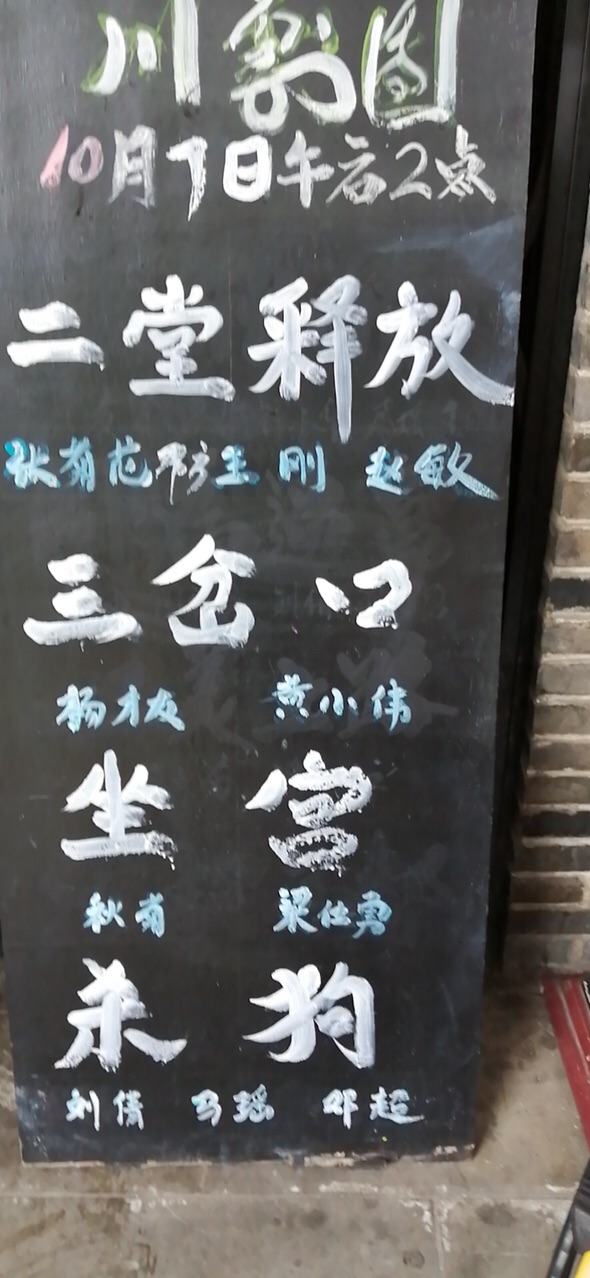 川剧团
10月1日午后2点
二堂释放
张菊花 王刚 赵敏
三岔口
杨才友 黄小伟
坐宫
秋菊 梁仕勇
杀狗
刘倩 马瑶 邓超